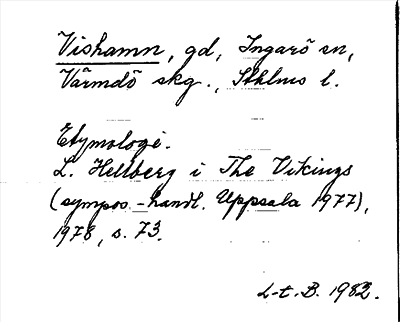 Vishamn, gd, Ingarö sn,
Värmdö skg., Sthlms l.
Etymologi.
L. Hellberg i The Vikings
(sympos.-handl. Uppsala 1977),
1978, s. 73.
L-t. B. 1982.